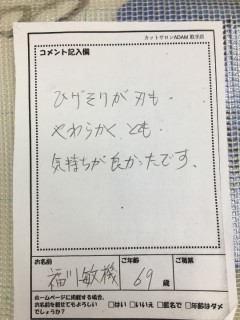 カットサロンADAM 取手店
コメント記入欄
ひげそりが刃も・
やわらかく とも・
気持ちが良かったです。
お名前 ご年齢 ご職業
福川敏機 69歳
ホームページに掲載する場合、
お名前を載せてもよろしい
でしょうか?
□はい □いいえ □匿名で □年齢はダメ